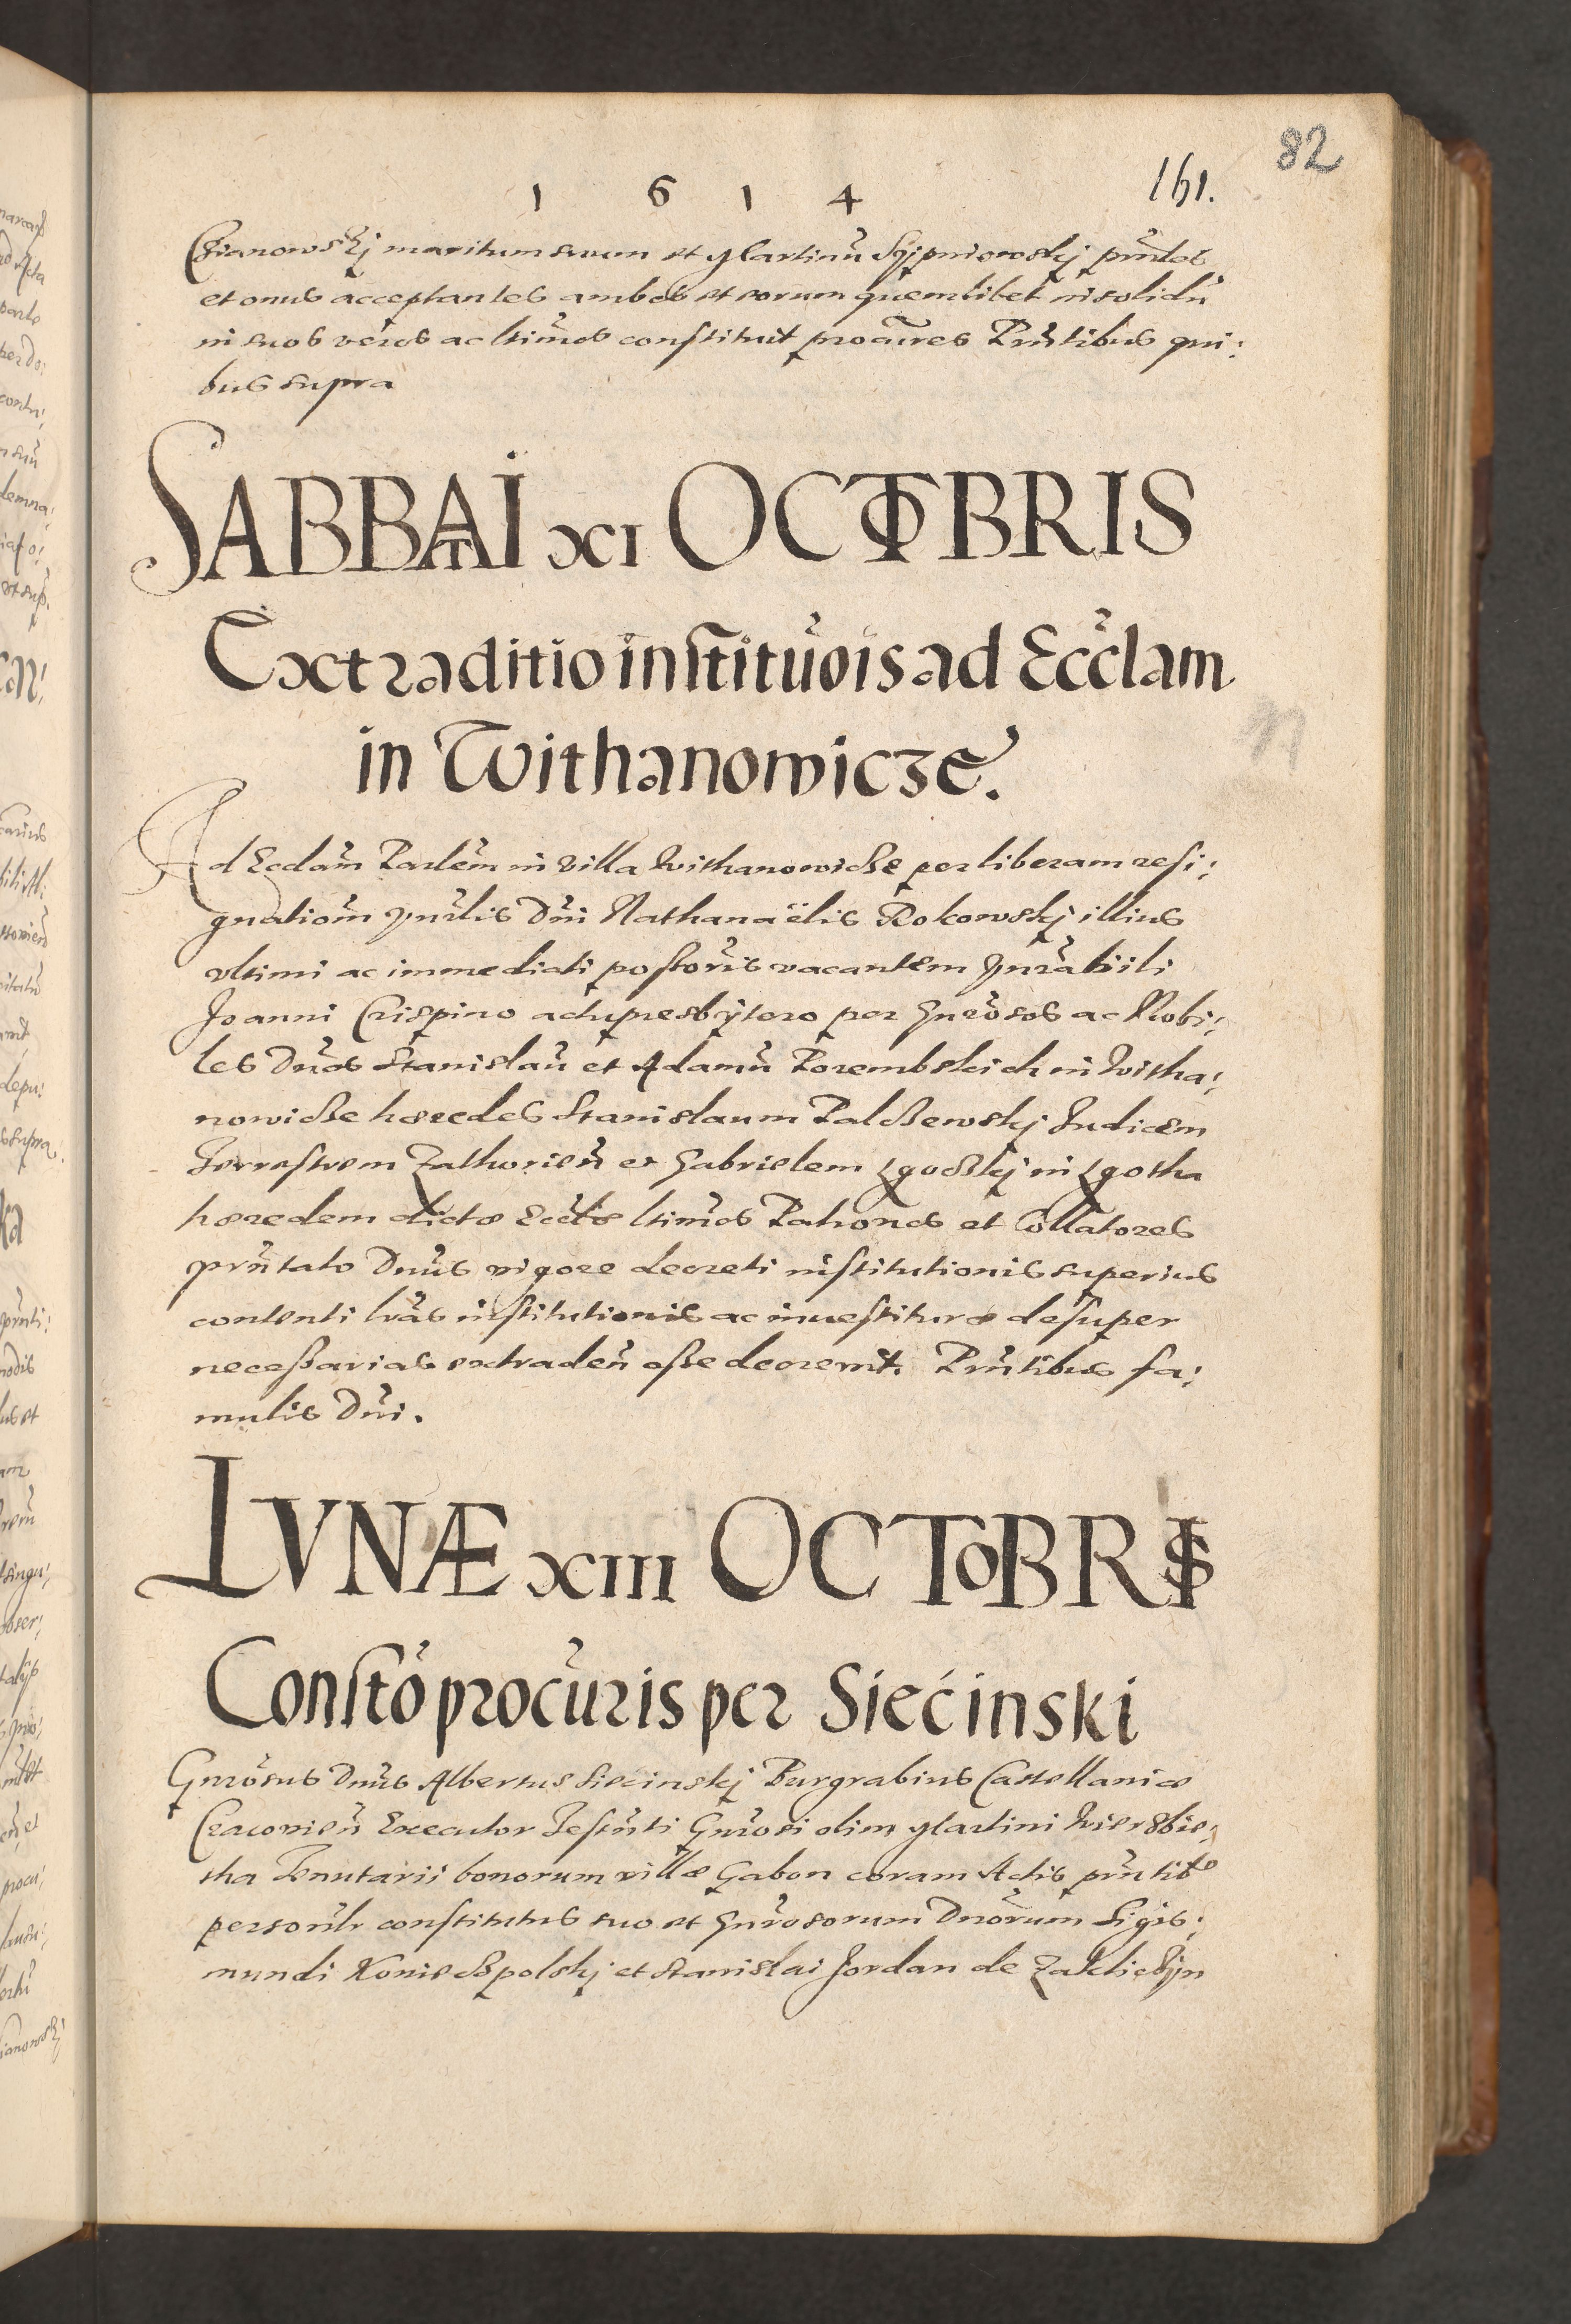 82
1 6 1 4
161.
Chianowskij maritum suum et Martinũ Szijpniewskij pñtes
et onus acceptantes ambos et eorum quemlibet in solidũ
in suos veros ac ltimos constituit procũres Pñtibus qui:
bus supra
SABBATI XI OCTOBRIS
Extraditio institũois ad Eccl̃am
in Withanowicze.
Ad Eccl̃am Parl̃em in Villa Withanowicze per liberam resi:
gnatioñ Vnrl̃is Dñi Nathanaëlis Rokowskij illius
vltimi ac immediati possoris vacantem Vnrabili
Joanni Crispino actu presbÿtero per Gnrosos ac Nobi:
les Dños Stanislaũ et Adamũ Porembskich in Witha:
nowicze hæredes Stanislaum Palczewskij Judicem
Terrestrem Zathorieñ et Gabrielem Zgodzkij in Zgotha
hæredem dictæ Eccl̃æ ltimos Patronos et Collatores
pr̃ntato Dñus vigore decreti institutionis superius
contenti lr̃as institutionis ac inuestituræ desuper
necessarias extradeñ esse decreuit. Pñtibus fa:
mulis Dñi.
LVNÆ XIII OCTOBRIS
Constõ procũris per Siećinski
Gnrosus Dñus Albertus Siecinskij Burgrabius Castellaniæ
Cracouieñ Executor Testñti Gnrosi olim Martini Wierzbie:
tha Tenutarii bonorum villæ Gabon coram Actis pñtibs
persoñlr constitutus suo et Gnrosorum Dnorum Sigis:
mundi Konieczpolskij et Stanislai Jordan de Zakliczÿn